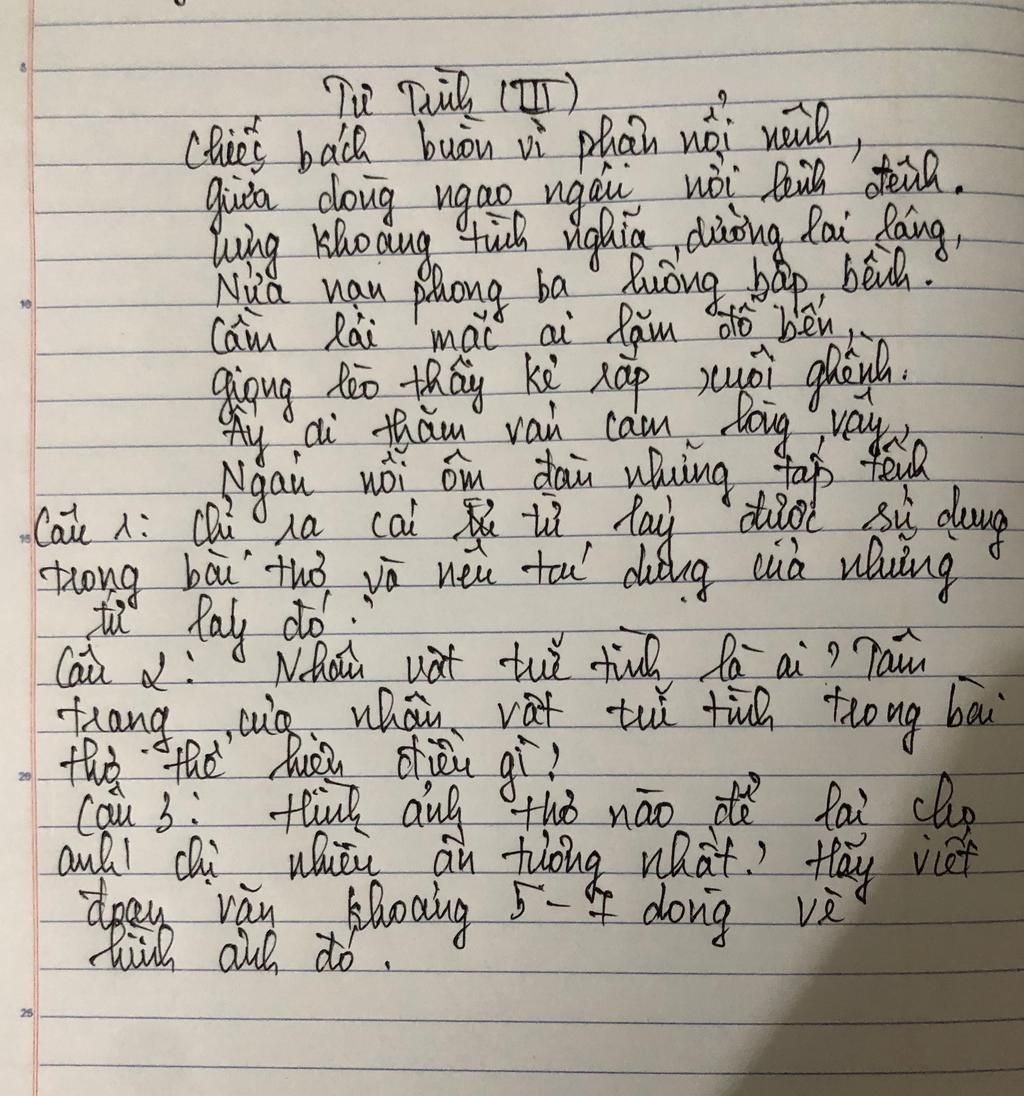 Tự Tình (III)
Chiếc bách buồn vì phận nổi nênh,
Giữa dòng ngao ngán nỗi lênh đênh.
Lưng khoang tình nghĩa dường lai láng,
Nửa nạn phong ba luống bập bềnh.
Cầm lái mặc ai lăm đỗ bến,
Giọng lèo thấy kẻ rắp xuôi ghềnh.
Ấy ai thăm ván cam lòng vậy,
Ngán nỗi ôm đàn những tấp tênh
Câu 1: Chỉ ra cái từ láy được sử dụng
trong bài thơ và nêu tác dụng của những
từ láy đó?
Câu 2: Nhân vật trữ tình là ai? Tâm
trạng của nhân vật trữ tình trong bài
thơ thể hiện điều gì?
Câu 3: Hình ảnh thơ nào để lại cho
anh/ chị nhiều ấn tượng nhất? Hãy viết
đoạn văn khoảng 5-7 dòng về
hình ảnh đó.